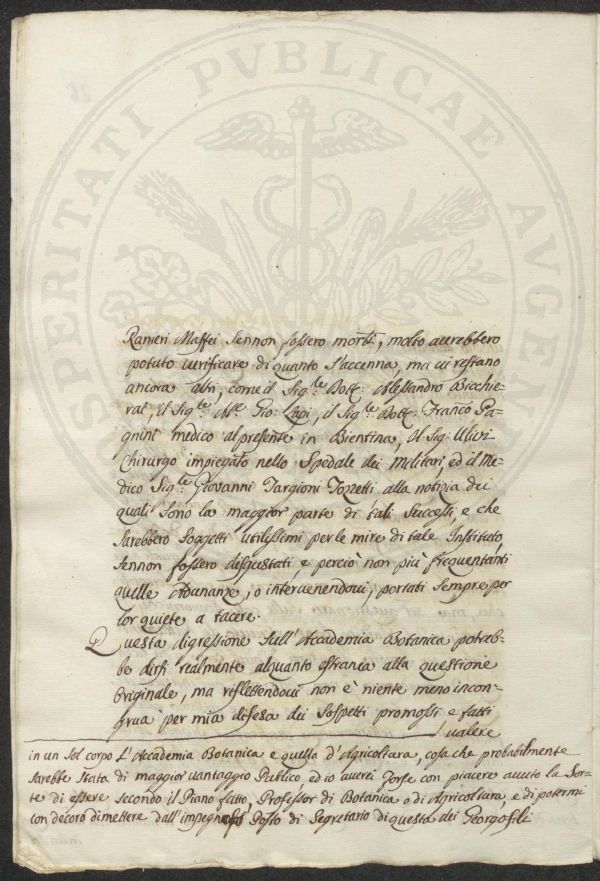 PROSPERITATI PVBLICAE AVGEN
Ranieri Maffei sennon fossero morti, molto averebbero
potuto verificare di quanto s'accenna, ma vi restano
ancora altri, come il Sig.re Dott: Alessandro Bicchie-
rai, il Sig.re Ab.e Gio: Lapi, il Sig.re Dott: Franco Pa-
gnini medico al presente in Bientina, Il Sig: Ulivi
Chirurgo impiegato nello Spedale dei Militari, ed il Me-
dico Sig.re Giovanni Targioni Tozzetti alla notizia dei
quali sono la maggior parte di tali successi, e che
sarebbero soggetti utilissimi per le mire di tale Instituto
sennon fossero disgustati, e perciò non più frequentanti
quelle Adunanze, o intervenendovi, portati sempre per
lor quiete a tacere.
Questa digressione sull'Accademia Botanica potreb-
be dirsi realmente alquanto estranea alla questione
Originale, ma riflettendovi non è niente meno incon-
grua per mia difesa dei sospetti promossi e fatti
valere
in un sol corpo l'Accademia Botanica e quella d'Agricoltura, cosa che probabilmente
sarebbe stata di maggior vantaggio Publico, ed io averei forse con piacere avuto la sor-
te di essere secondo il Piano fatto, Professor di Botanica o di Agricoltura, e di potermi
con decoro dimettere dall'impegnoso Posto di Segretario di questa dei Georgofili